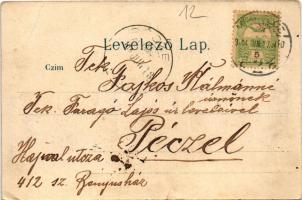 12
Levelező Lap.
Czim
Tek.
Fajkos Kálmánné
úrnőnek
Tek. Faragó Lajos úr levelével
Péczel
Hajnal utcza
412 sz.